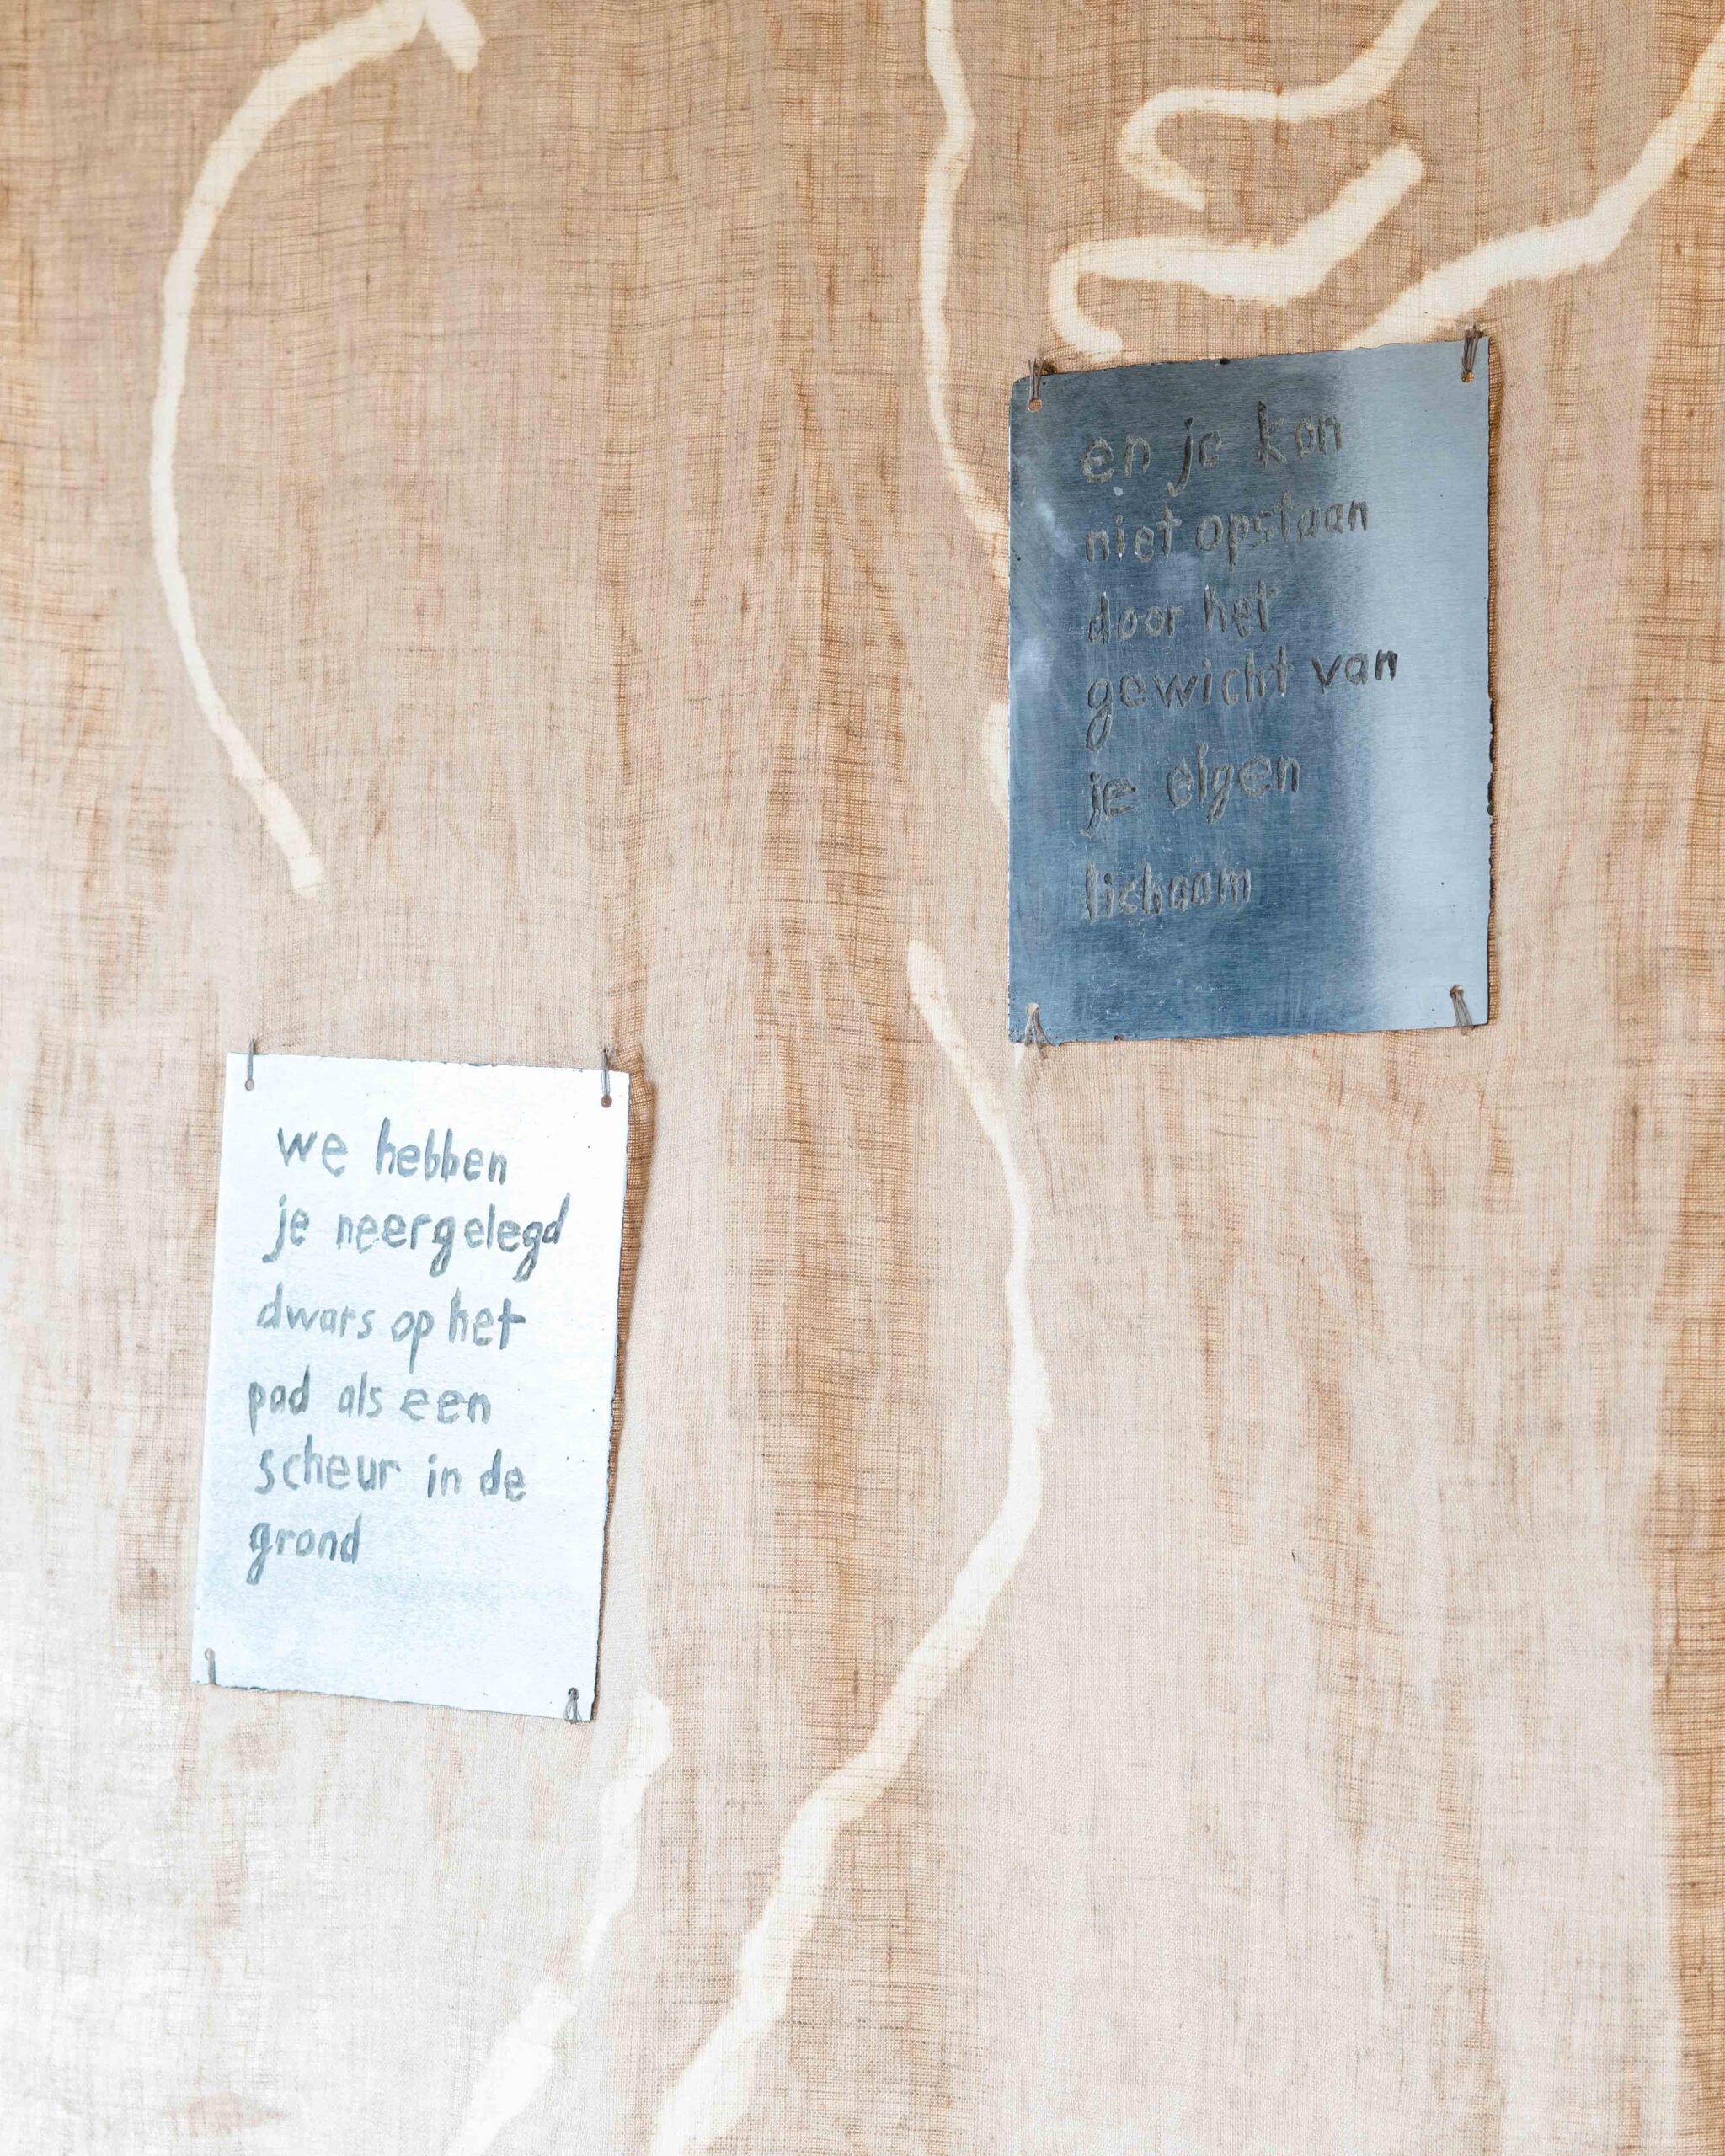 we hebben
je neergelegd
dwars op het
pad als een
scheur in de
grond
en je kon
niet opstaan
door het
gewicht van
je eigen
lichaam